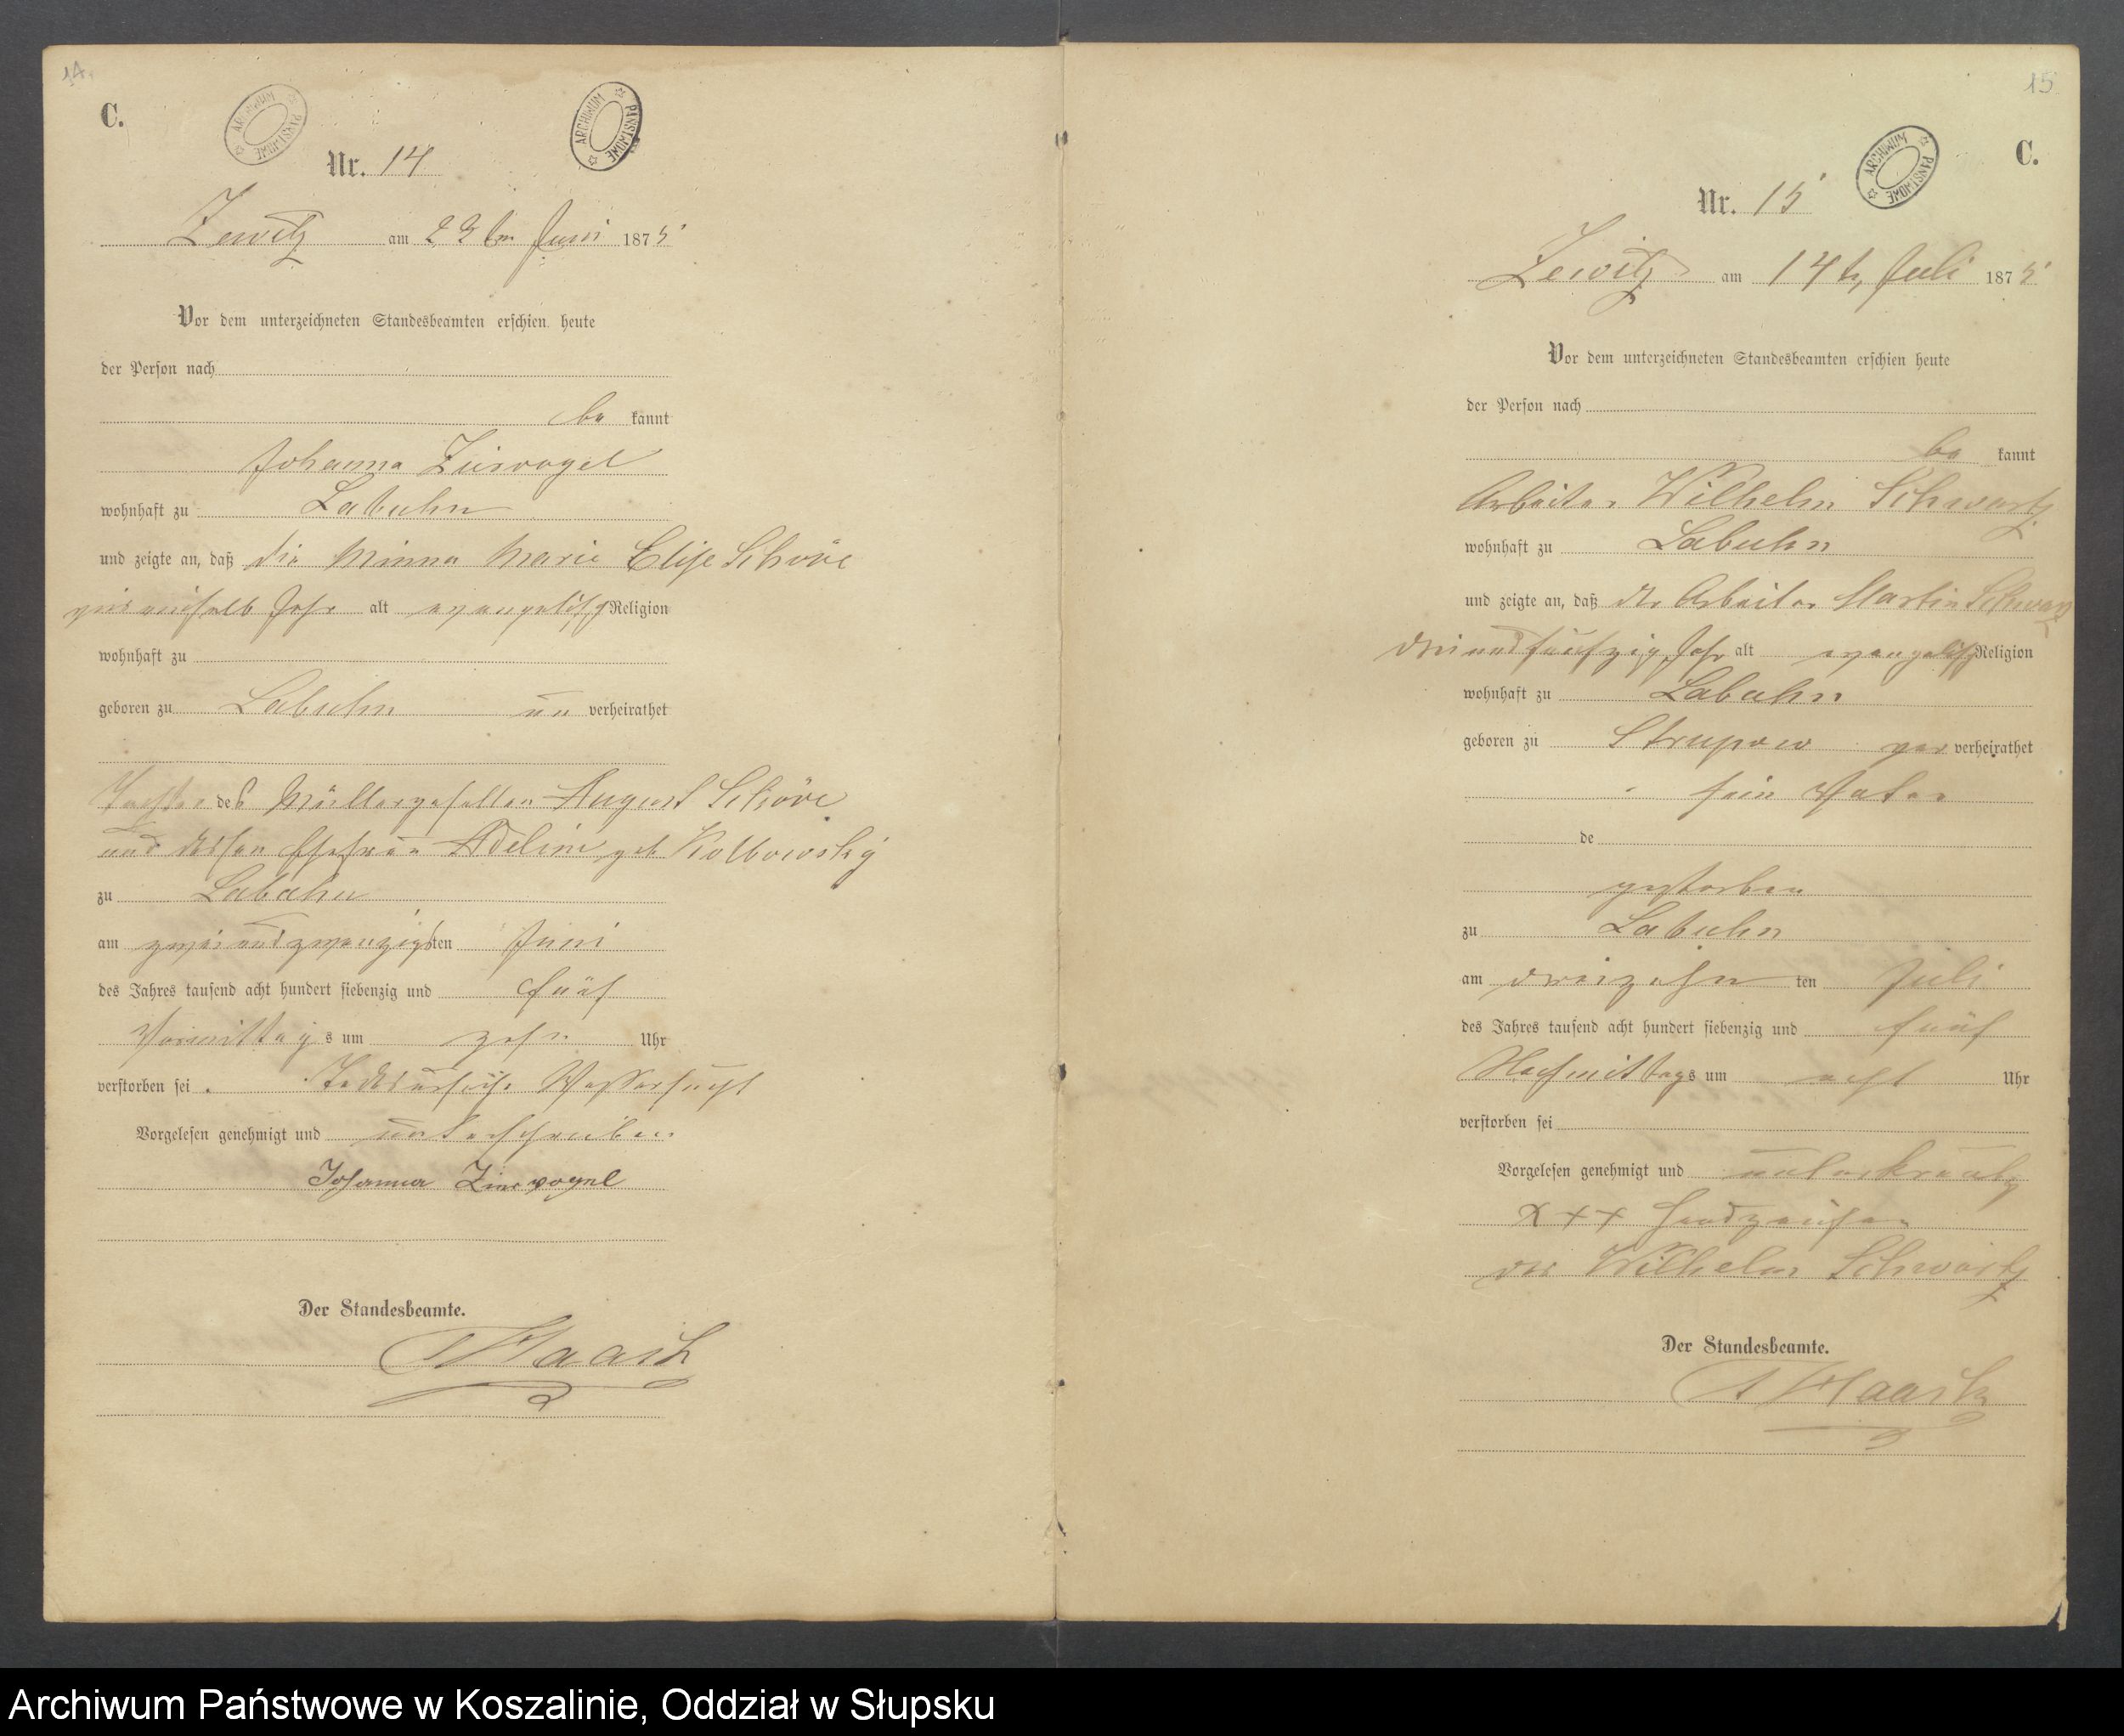 14.
C.
ARCHIWUM PAŃSTWOWE
ARCHIWUM PAŃSTWOWE
Nr. 14
Zewitz am 22ten Juni 1875
Vor dem unterzeichneten Standesbeamten erschien heute
der Person nach
be kannt
Johanna Ziervogel
wohnhaft zu Labuhn
und zeigte an, daß die Minna Marie Elise Schöve
Jahr alt evangelisch Religion
wohnhaft zu
geboren zu Labuhn un verheirathet
Tochter des Müllergesellen August Schöve
und dessen Ehefrau Adeline geb Kolbowsky
zu Labuhn
am zweiundzwanzigsten Juni
des Jahres tausend acht hundert siebenzig und fünf
Vormittags um zehn Uhr
verstorben sei. Wassersucht
Vorgelesen genehmigt und unterschrieben
Johanna Ziervogel
Der Standesbeamte.
Haasch
15
C.
ARCHIWUM PAŃSTWOWE
Nr. 15
Zewitz am 14ten Juli 1875
Vor dem unterzeichneten Standesbeamten erschien heute
der Person nach
be kannt
Arbeiter Wilhelm Schwartz
wohnhaft zu Labuhn
und zeigte an, daß der Arbeiter Martin Schwartz
dreiundfünfzig Jahr alt evangelisch Religion
wohnhaft zu Labuhn
geboren zu Strupow ver verheirathet
sein Vater
de
gestorben
zu Labuhn
am dreizehn ten Juli
des Jahres tausend acht hundert siebenzig und fünf
Nachmittags um acht Uhr
verstorben sei
Vorgelesen genehmigt und unterkreuzt
XXX Handzeichen
des Wilhelm Schwartz
Der Standesbeamte.
Haasch
Archiwum Państwowe w Koszalinie, Oddział w Słupsku